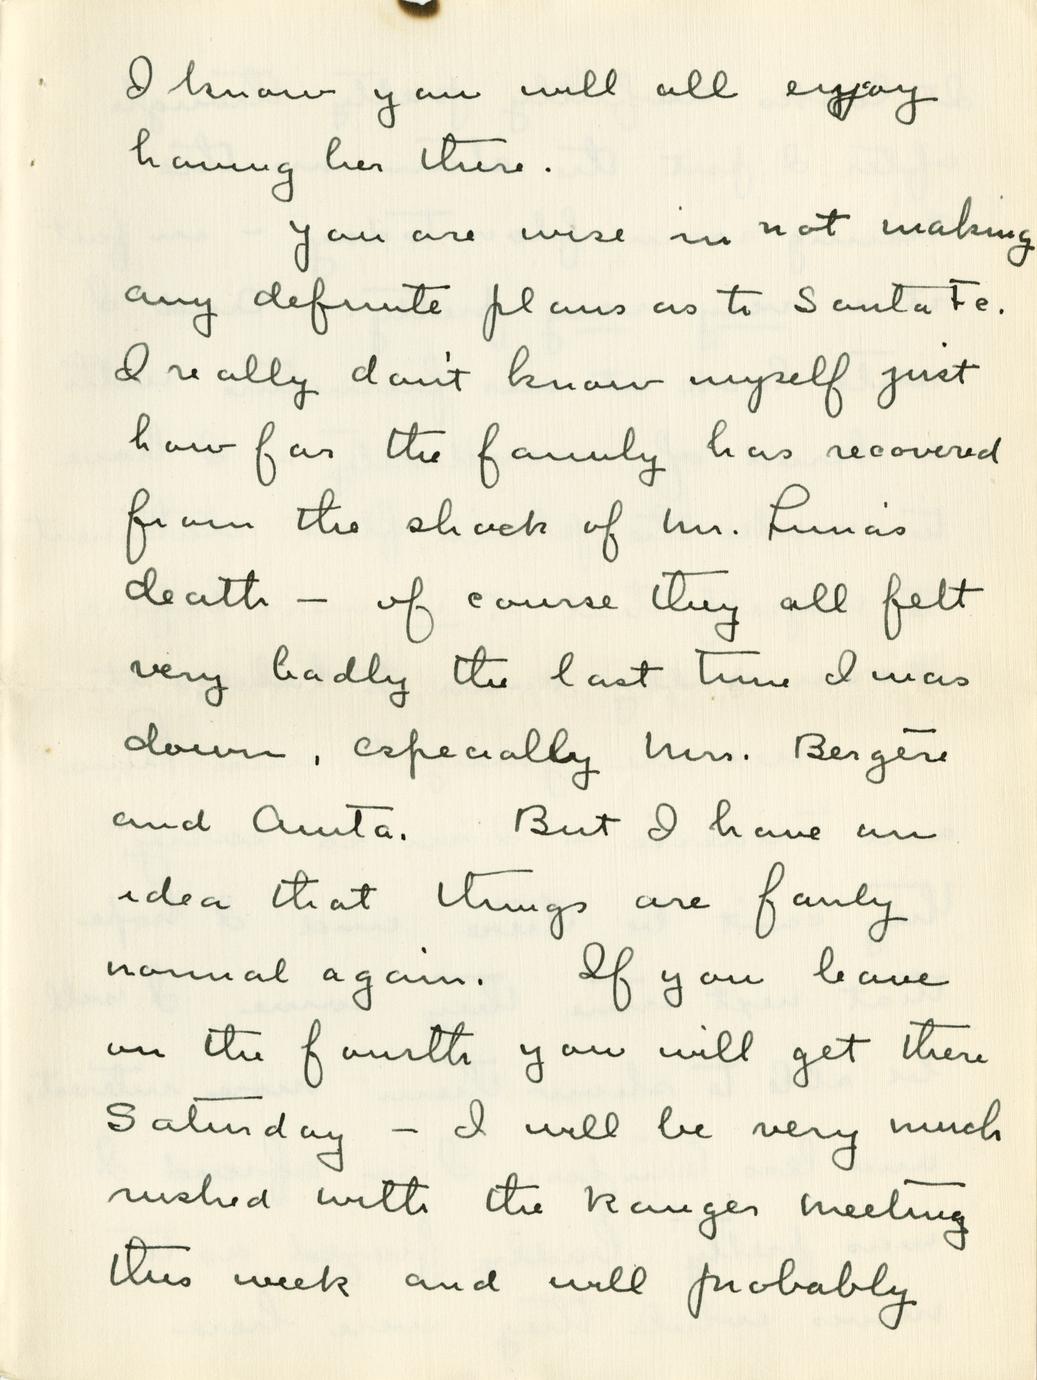 I know you will all enjoy
having her there.
You are wise in not making
any definite plans as to Santa Fe.
I really don't know myself just
how far the family has recovered
from the shock of Mr. Luna's
death — of course they all felt
very badly the last time I was
down, especially Mrs. Bergere
and Anita. But I have an
idea that things are fairly
normal again. If you leave
on the fourth you will get there
Saturday — I will be very much
rushed with the Ranger meeting
this week and will probably